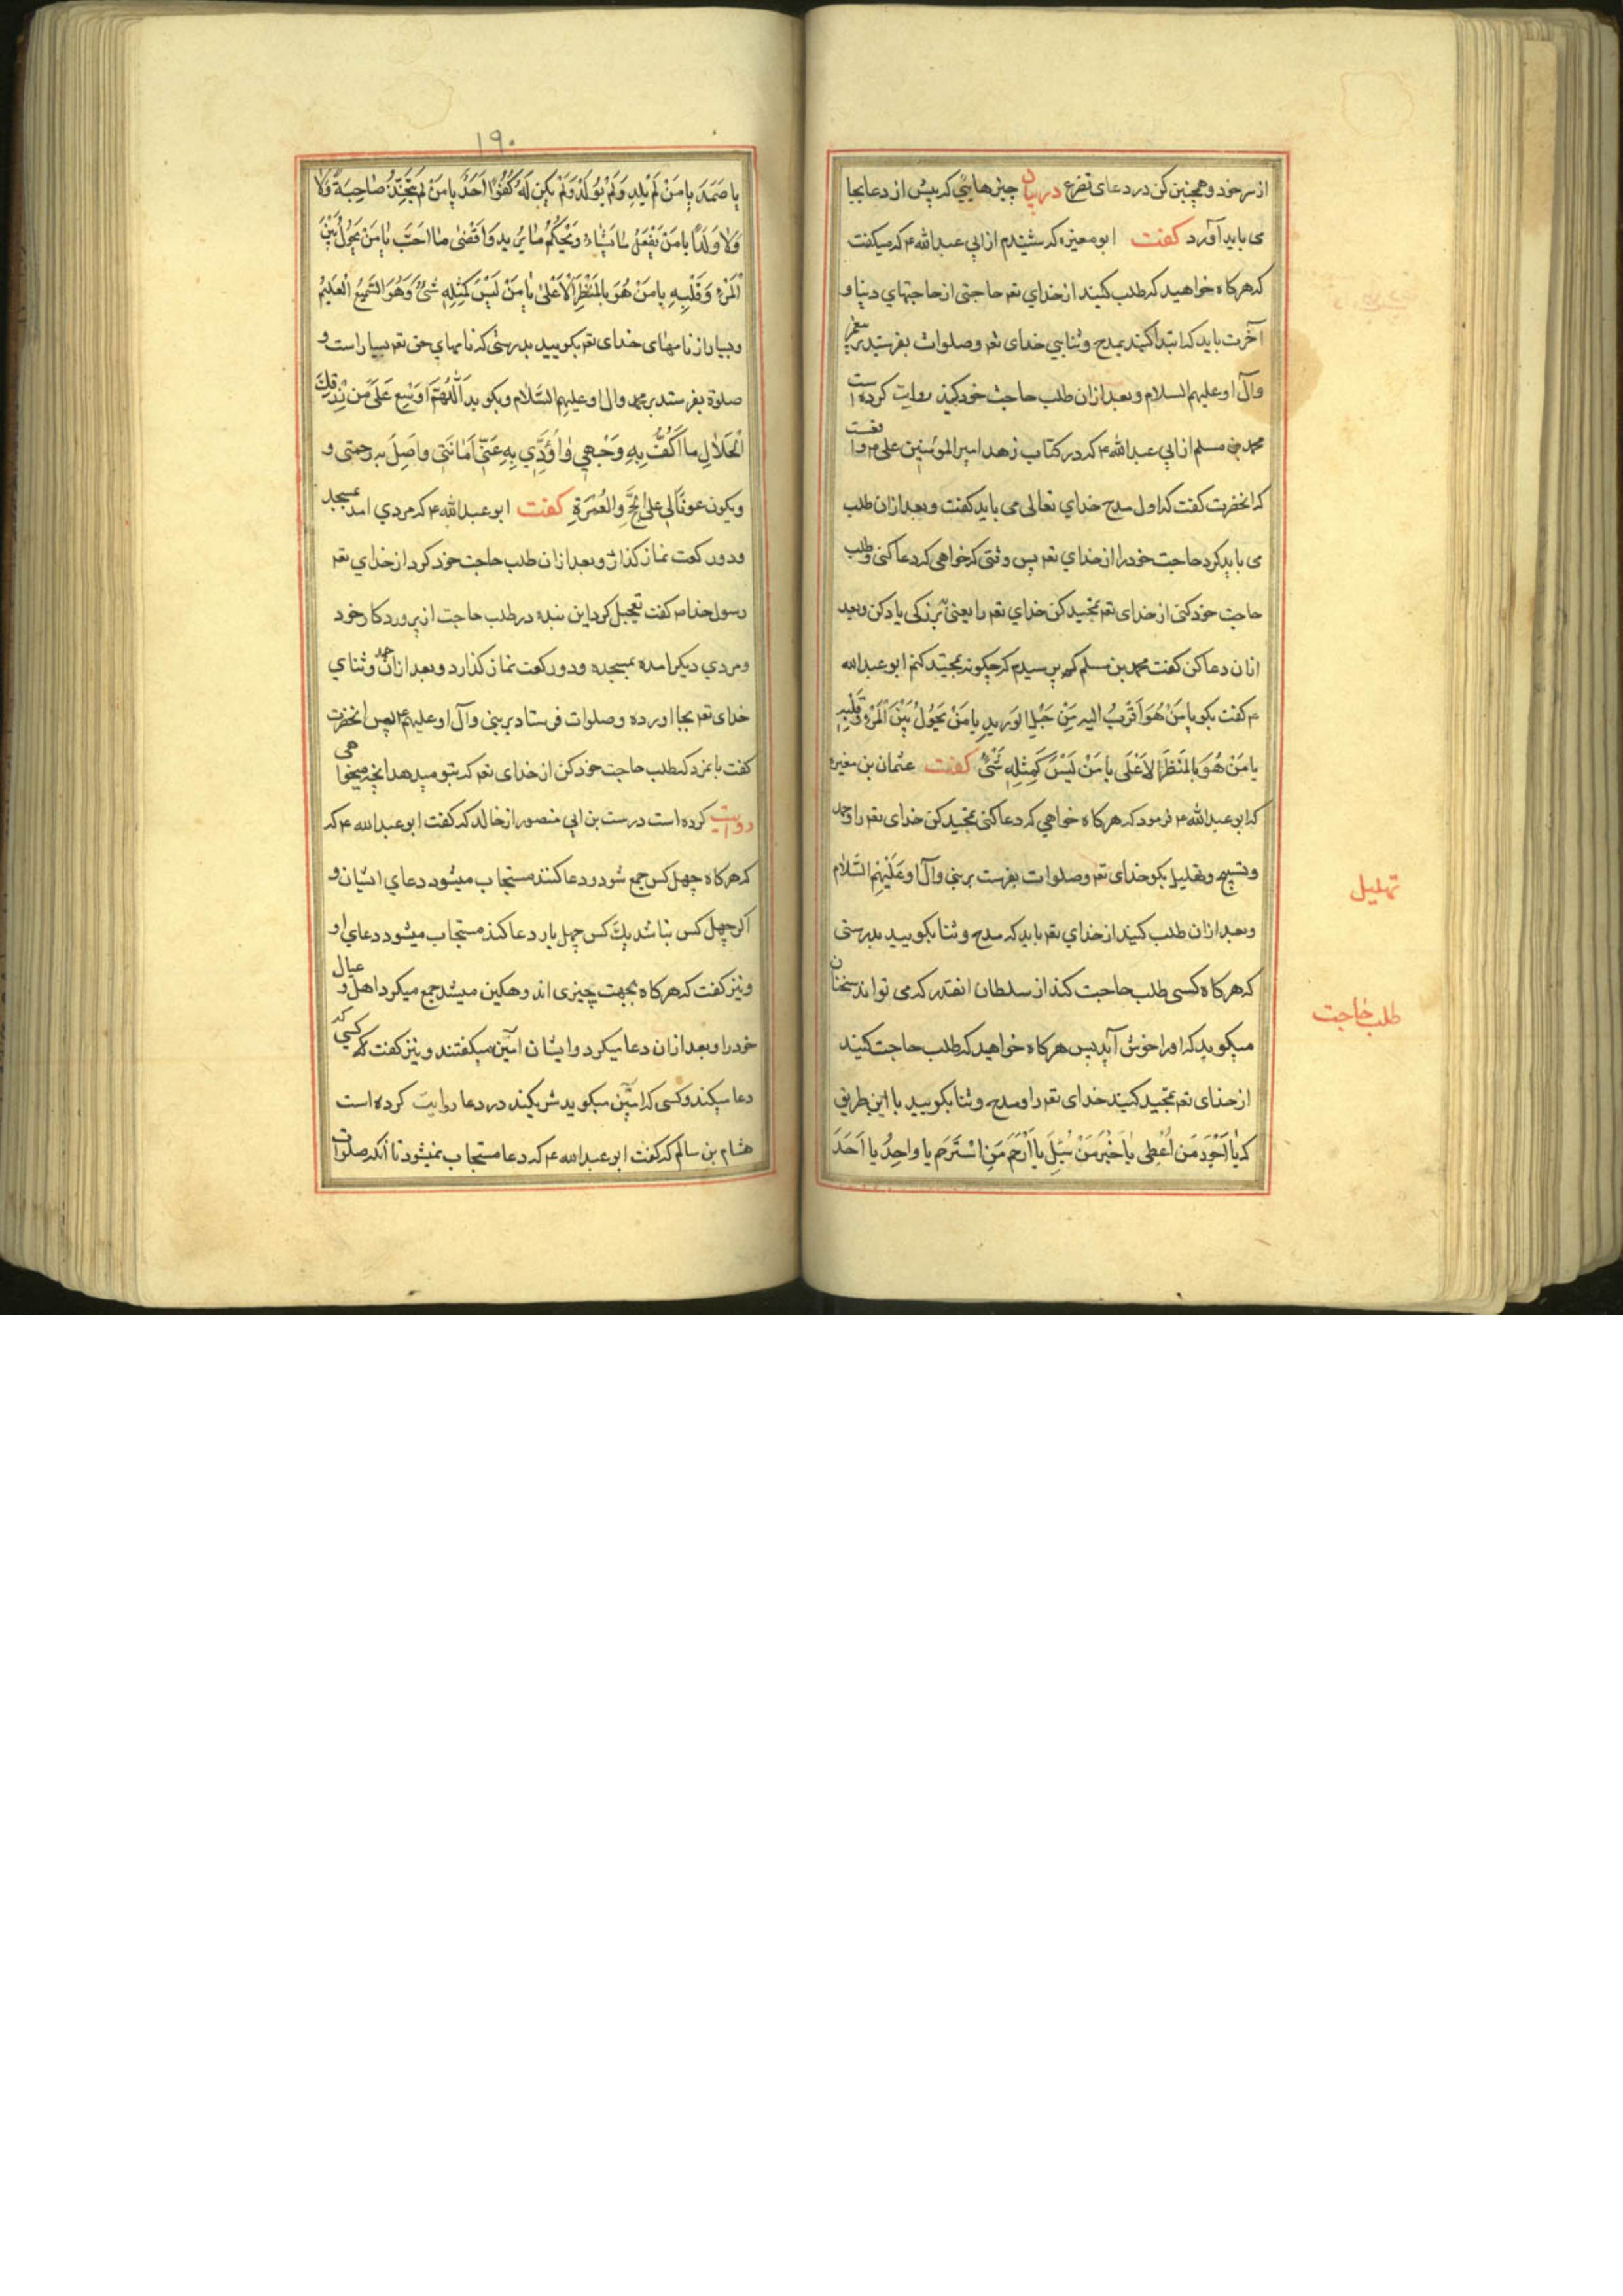 از سر خود و همچنین کن در دعای تضرع در بیان چیزهایی که پیش از دعا بجا
می باید آورد کفت ابو مغیره که شنیدم از ابی عبدالله ۴ که میکفت
که هرکاه خواهید که طلب کنید از خدای تعم حاجتی از حاجتهای دنیا و
آخرت باید که ابتدا کنید بمدح و ثنایی خدای تعم وصلوات بفرستید بر پیغمبر
وآل او علیهم السلام وبعد ازان طلب حاجت خود کنید روایت کرده است
محمد بن مسلم از ابی عبدالله ۴ که در کتاب زهد امیر المومنین علی ۴ واقعست
که انحضرت کفت که اول مدح خدای تعالی می باید کفت وبعد ازان طلب
می باید کرد حاجت خود را از خدای تعم پس وقتی که خواهی که دعا کنی وطلب
حاجت خود کنی از خدای تعم تمجید کن خدای تعم را یعنی بزرکی یاد کن وبعد
ازان دعا کن کفت محمد بن مسلم که پرسیدم که چکونه تمجید کنم ابو عبدالله
۴ کفت بکو یا مَنْ هُوَ اَقْرَبُ الیه مِنْ حَبْلِ الوَرِیدِ یا مَنْ یَحُولُ بَیْنَ الْمَرْءِ وَقَلْبِهِ
یا مَنْ هُوَ بِالْمَنْظَرِ الاَعْلَی یا مَنْ لَیْسَ کَمِثْلِهِ شَیْءٌ کفت عثمان بن مغیره
که ابو عبدالله ۴ فرمود که هرکاه خواهی که دعا کنی تمجید کن خدای تعم را وحمد
وتسبیح وتهلیل بکو خدای تعم وصلوات بفرست بر نبی وآل او عَلَیْهِمُ السَّلام
وبعد ازان طلب کنید از خدای تعم باید که مدح وثنا بکویید بدرستی
که هرکاه کسی طلب حاجت کند از سلطان انقدر که می تواند سخنان
میکوید که او را خوش آید پس هرکاه خواهید که طلب حاجت کنید
از خدای تعم تمجید کنید خدای تعم را ومدح وثنا بکویید با این طریق
که یا اَجْوَدَ مَن اَعْطی یا خَیْرَ مَنْ سُئِلَ یا اَرْحَمَ مَنِ اسْتُرْحِمَ یا واحِدُ یا اَحَدَ
تهلیل
طلب حاجت
۱۹۰
یا صَمَدَ یا مَنْ لَمْ یَلِدِ وَلَمْ یُولَدْ وَلَمْ یَکِنْ لَهُ کُفُوًا اَحَدٌ یا مَنْ لَمْ یَتَّخِذْ صاحِبَةً وَلا
وَلا وَلَدًا یا مَنْ یَفْعَلُ ما یَشاءُ وَیَحْکُمُ ما یُرید وَ اقَضی ما اَحَبَّ یا مَنْ یَحُولُ بَیْنَ
الْمَرْءِ وَقَلْبِهِ یا مَنْ هُوَ بِالمَنْظَرِ الْاَعْلیٰ یا مَنْ لَیْسَ کَمِثْلِهِ شَیْءٌ وَهُوَ السَّمیعُ الْعَلیمُ
وبسیار از نامهای خدای تعم بکویید بدرستی که نامهای حق تعم بسیار است و
صلوة بفرستد بر محمد وال او علیهم السّلام وبکوید اَللّهُمَّ اَوْسِعْ عَلَیَّ مِن رِزْقِكَ
الْحَلالِ ما اَکُفُّ بِهِ وَجْهی وَاُؤَدّی بِهِ عَنّی اَمانَتی واَصِلَ به رحمتی و
ویکون عونًا لی علی الحَجِّ وَالْعُمْرَةِ کفت ابو عبدالله ۴ که مردی امد بمسجد
ودو رکعت نماز کذارد وبعد ازان طلب حاجت خود کرد از خدای تعم
رسول خدا ص کفت تعجیل کرد این بنده در طلب حاجت از پروردکار خود
ومردی دیکر امده بمسجده ودو رکعت نماز کذارد وبعد ازان حمد وثنای
خدای تعم بجا اورده وصلوات فرستاد بر نبی وآل او علیهم پس انحضرت
کفت بانمرد که طلب حاجت خود کن از خدای تعم که بتو میدهد انچه میخواهی
روایت کرده است درست بن ابی منصور از خالد که کفت ابو عبدالله ۴ که
که هرکاه چهل کس جمع شود ودعا کنند مستجاب میشود دعای ایشان و
اکر چهل کس نباشد یك کس چهل بار دعا کند مستجاب میشود دعای او
ونیز کفت که هرکاه بجهت چیزی اندوهکین میشد جمع میکرد اهل وعیال
خود را وبعد ازان دعا میکرد وایشان امین میکفتند ونیز کفت که کسی که
دعا میکند وکسی که امین میکوید شریکند در دعا روایت کرده است
هشام بن سالم که کفت ابو عبدالله ۴ که دعا مستجاب نمیشود تا انکه صلوات